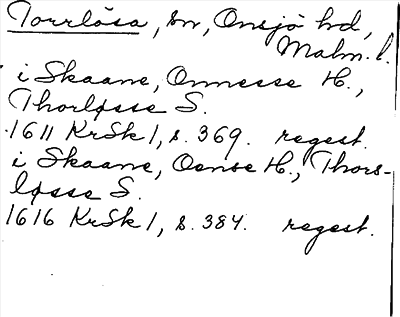 Torrlösa, sn, Onsjö hd,
Malm. l.
i Skaane, Onnesse H.,
Thorløsse S.
1611 KrSk 1, s. 369. regest.
i Skaane, Oense H., Thors-
løsse S.
1616 KrSk 1, s. 384. regest.